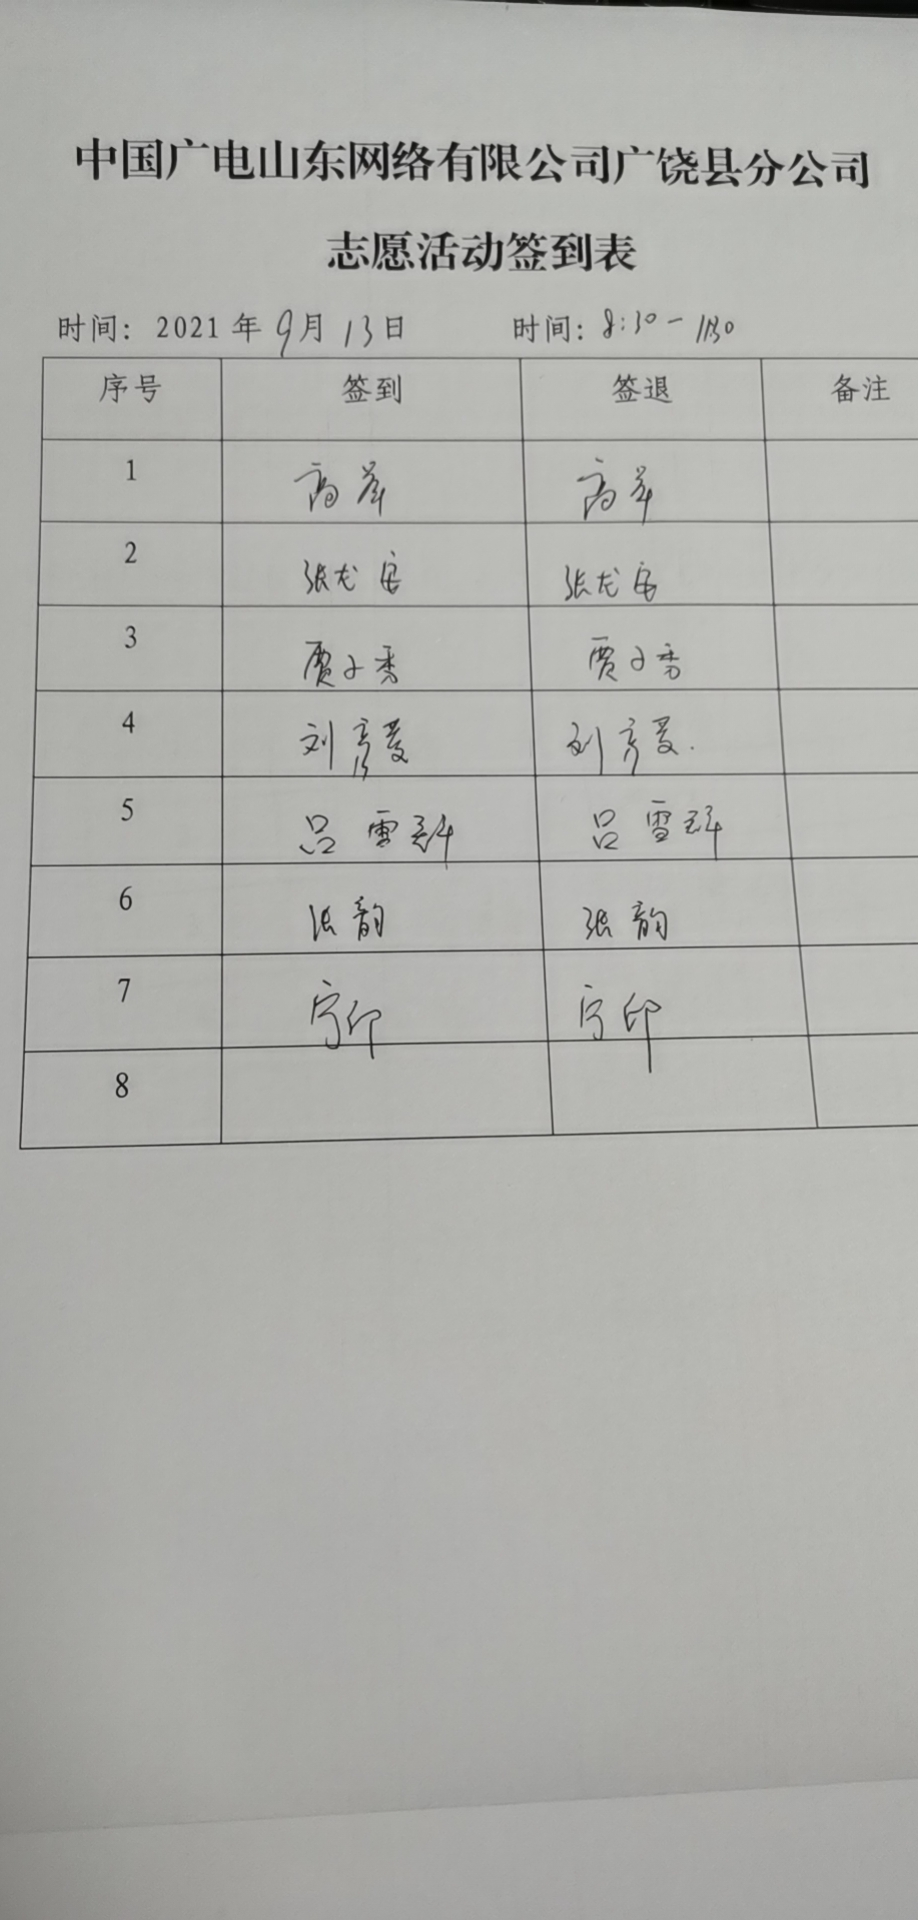 中国广电山东网络有限公司广饶县分公司
志愿活动签到表
时间：2021年9月13日 时间：8:30-11:30
序号 签到 签退 备注
1 高 高
2 张龙 张龙
3 贾子秀 贾子秀
4 刘彦 刘彦
5 吕雪 吕雪
6 张韵 张韵
7 宁印 宁印
8